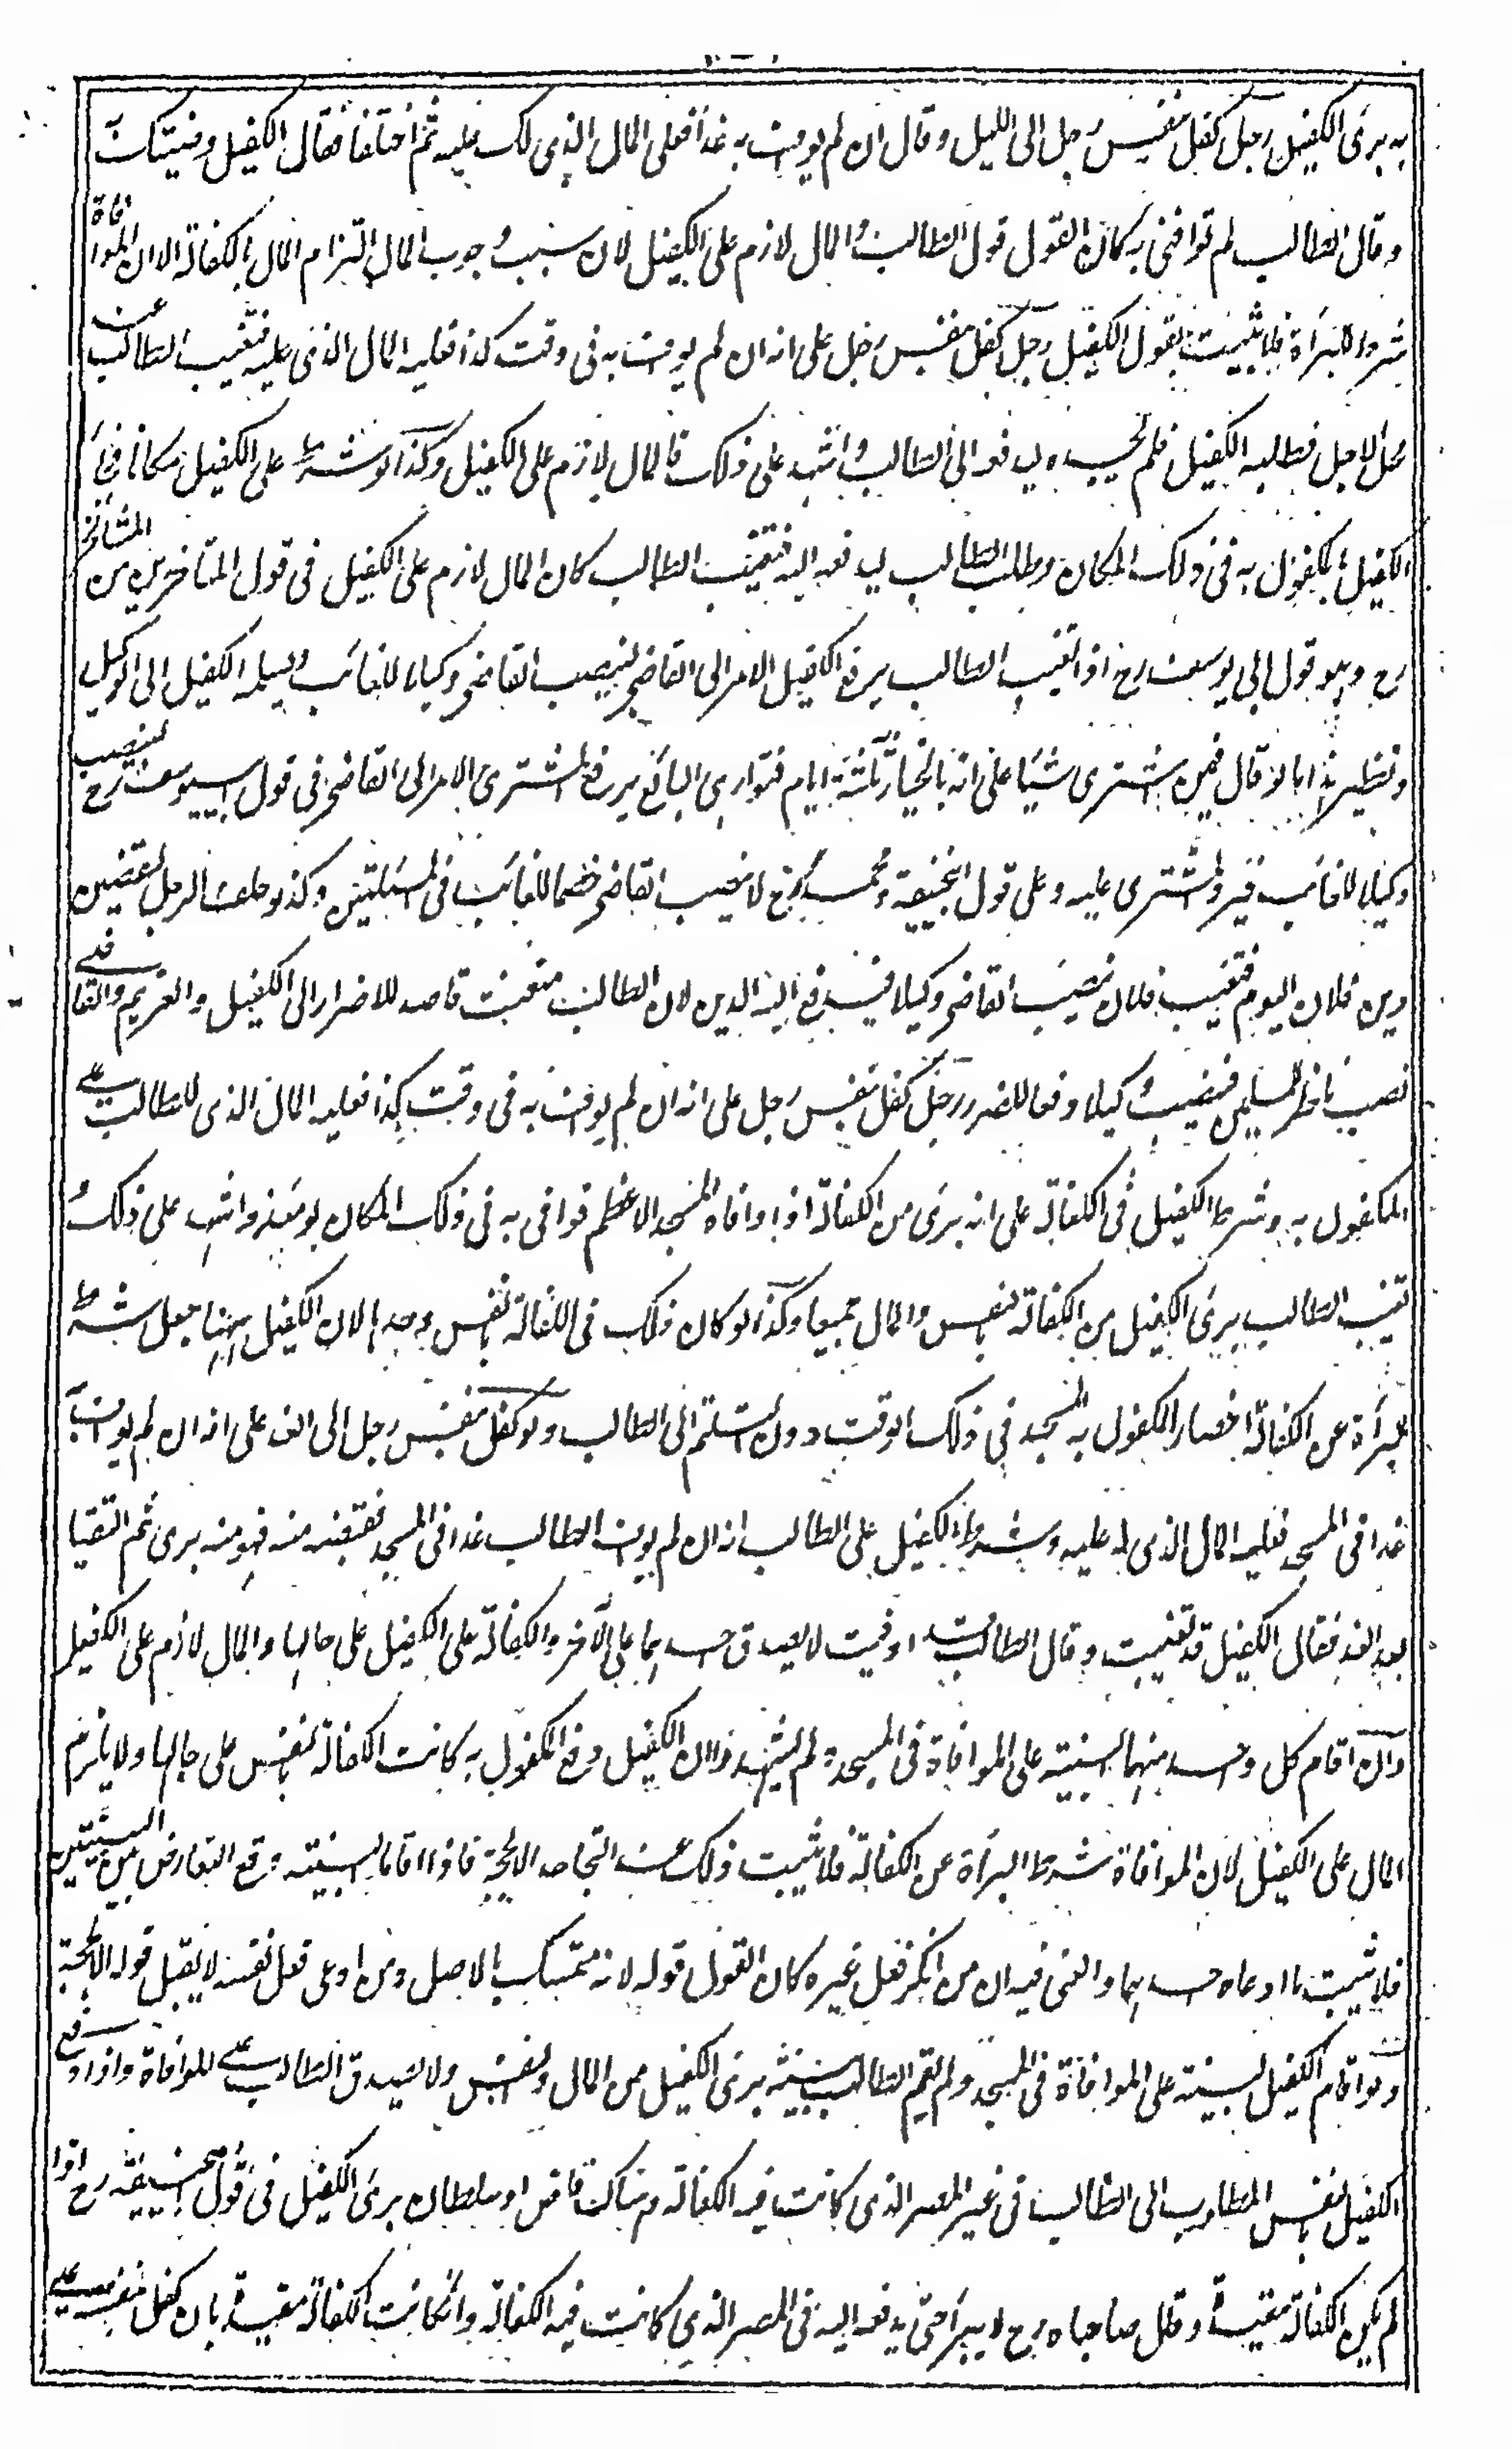 به برئ الكفيل رجل كفل بنفس رجل الى الليل وقال ان لم يوف به غدا فعلى المال الذى لك عليه ثم اختلفا فقال الكفيل وفيتك به
وقال الطالب لم توافنى به كان القول قول الطالب والمال لازم على الكفيل لان سبب وجوب المال التزام المال بالكفالة الا ان الموافاة
شرط للبرأة فلا يثبت بقول الكفيل رجل كفل بنفس رجل على انه ان لم يوف به فى وقت كذا فعليه المال الذى عليه فتغيب الطالب عن
محل الاجل فطلبه الكفيل فلم يجده ليدفعه الى الطالب واشهد على ذلك فالمال لازم على الكفيل وكذا لو شرط على الكفيل مكانا فجاء
الكفيل بالمكفول به فى ذلك المكان وطلب الطالب ليدفعه اليه فتغيب الطالب كان المال لازم على الكفيل فى قول المتاخرين من المشائخ
رح وهو قول ابى يوسف رح اذا تغيب الطالب يرفع الكفيل الامر الى القاضى لينصب القاضى وكيلا للغائب ويسلمه الكفيل الى الوكيل
ونظير هذا ما لو قال فيمن يشترى شيئا على انه بالخيار ثلثة ايام فتوارى البائع يرفع المشترى الامر الى القاضى فى قول ابى يوسف رح لينصب
وكيلا للغائب فيرد المشترى عليه وعلى قول ابى حنيفة ومحمد رح لا ينصب القاضى خصما للغائب فى المسئلتين وكذا لو حلف الرجل ليقضين
دين فلان اليوم فتغيب فلان ينصب القاضى وكيلا فيدفع اليه الدين لان الطالب متعنت قاصد للاضرار الى الكفيل والغريم والقاضى
نصب ناظرا للمسلمين فينصب وكيلا دفعا للضرر رجل كفل بنفس رجل على انه ان لم يوف به فى وقت كذا فعليه المال الذى للطالب على
المكفول به وشرط الكفيل فى الكفالة على انه برئ من الكفالة اذا وافاه المسجد الاعظم فوافى به فى ذلك المكان يومئذ واشهد على ذلك و
تغيب الطالب يبرئ الكفيل من الكفالة بالنفس والمال جميعا وكذا لو كان ذلك فى الكفالة بالنفس وحدها لان الكفيل ههنا جعل شرط
البرأة عن الكفالة احضار المكفول به المسجد فى ذلك الوقت دون التسليم الى الطالب ولو كفل بنفس رجل الى الغد على انه ان لم يوف به
غدا فى المسجد فعليه المال الذى له عليه وشرط الكفيل على الطالب انه ان لم يواف الطالب غدا فى المسجد فيقبضه منه فهو منه برئ ثم التقيا
بعد الغد فقال الكفيل قد تغيبت وقال الطالب قد وافيت لا يصدق احدهما على الآخر والكفالة على الكفيل على حالها والمال لازم على الكفيل
وان اقام كل واحد منهما البينة على الموافاة فى المسجد ولم يشهدوا ان الكفيل دفع المكفول به كانت الكفالة بالنفس على حالها ولا يلزم
المال على الكفيل لان الموافاة شرط البرأة عن الكفالة فلا يثبت ذلك عند التجاحد الا بحجة فاذا اقاما البينة وقع التعارض بين البينتين
فلا يثبت ما ادعاه احدهما والمعنى فيه ان من انكر فعل غيره كان القول قوله لانه متمسك بالاصل ومن ادعى فعل نفسه لا يقبل قوله الا بحجة
ولو اقام الكفيل البينة على الموافاة فى المسجد ولم يقم الطالب بينة برئ الكفيل من المال والنفس ولا يصدق الطالب على الموافاة واذا دفع
الكفيل بنفس المطلوب الى الطالب فى غير المصر الذى كانت فيه الكفالة وهناك قاض او سلطان برئ الكفيل فى قول ابى حنيفة رح اذا
لم يكن الكفالة مقيدة وقال صاحباه رح لا يبرأ حتى يدفعه اليه فى المصر الذى كانت فيه الكفالة وان كانت الكفالة مقيدة بان كفل بنفسه على